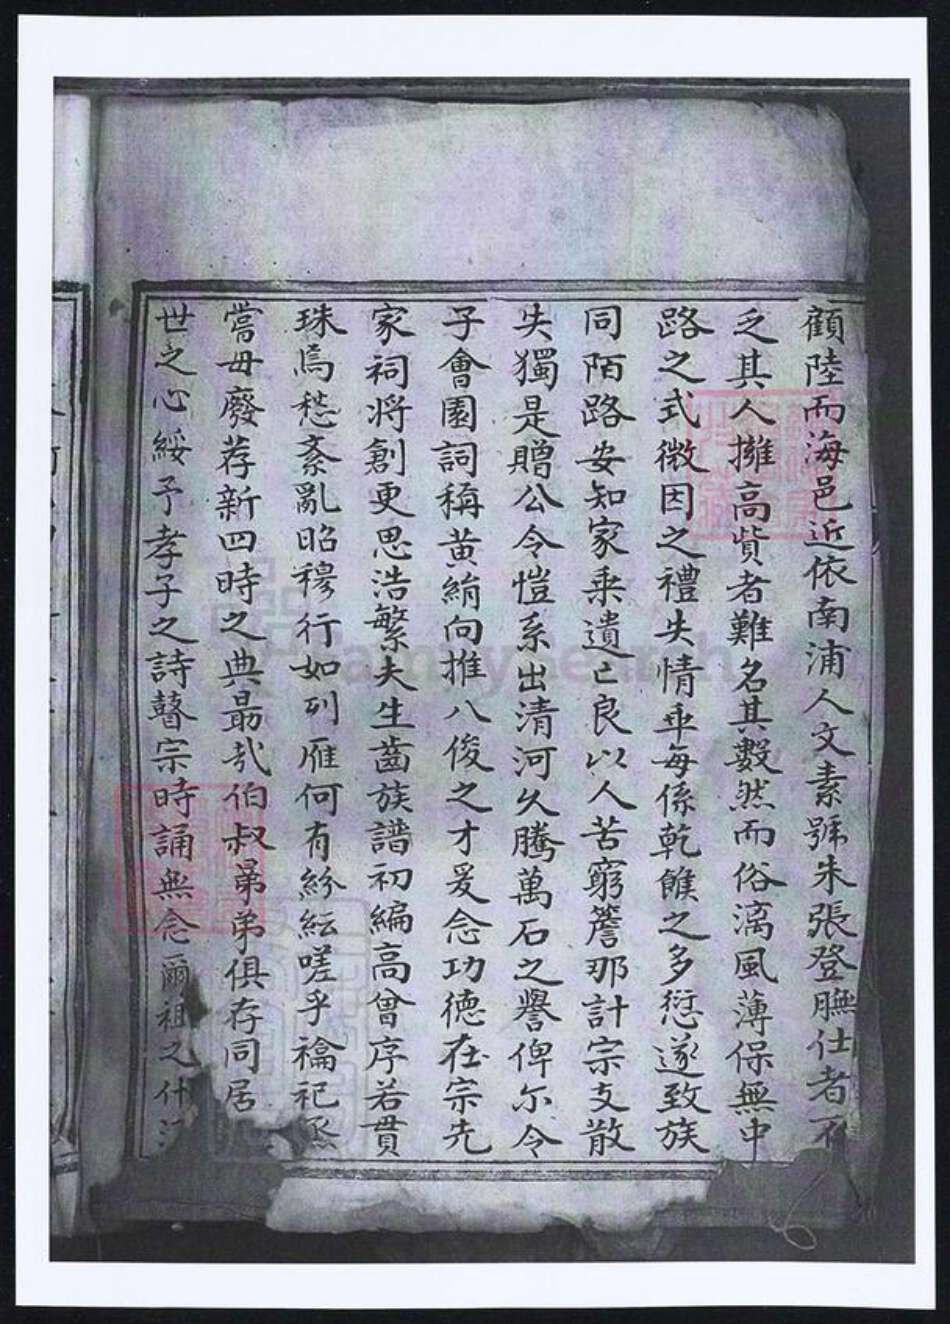 顧陸而海邑近依南浦人文素號朱張登膴仕者不
乏其人擁高貲者難名其數然而俗漓風薄保無中
路之式微因之禮失情乖每係乾餱之多愆遂致族
同陌路安知家乘遺亡良以人苦窮簷那計宗支散
失獨是贈公令愷系出清河久騰萬石之譽俾尔令
子會園詞稱黃絹向推八俊之才爰念功德在宗先
家祠将創更思浩繁夫生齒族譜初編高曾序若貫
珠焉愁紊亂昭穆行如列雁何有紛紜嗟乎禴祀烝
嘗毋廢荐新四時之典最哉伯叔弟弟俱存同居
世之心綏予孝子之詩瞽宗時誦無念爾祖之什
FamilySearch